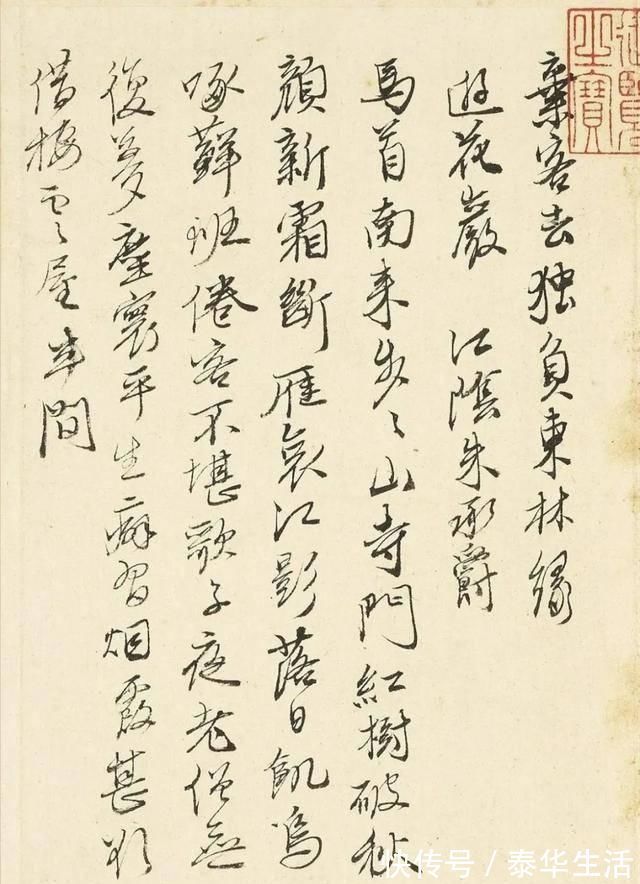 御覽之寶
棄客去独負東林緣
遊花巖 江陰朱承爵
馬首南来步〻山寺門紅樹破秋
顔新霜斷雁哀江影落日飢烏
啄蘚班倦客不堪歌子夜老僧無
復夢塵寰平生癖習烟霞甚欲
借捿雲屋半間
快传号 / 泰华生活